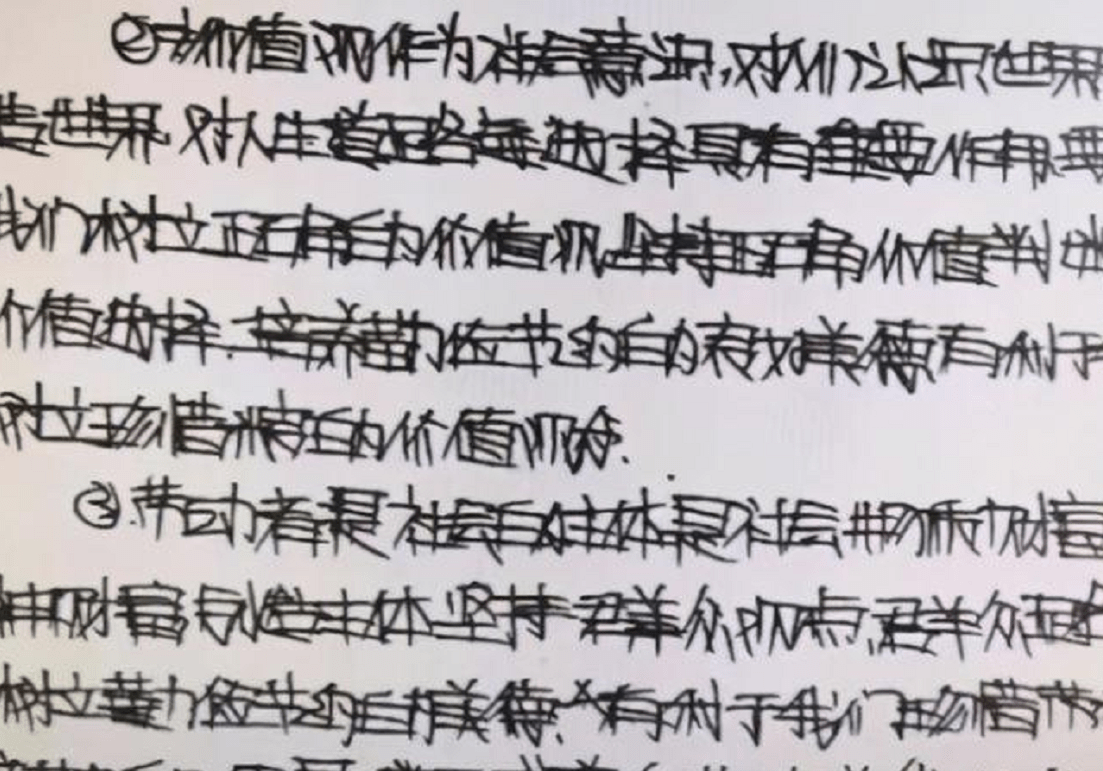 ②价值观作为社会意识,对人们认识世界
造世界,对人生道路的选择具有重要作用,要
我们树立正确的价值观,坚持正确价值判断
价值选择.培养勤俭节约的美德有利于
树立珍惜粮食的价值观念.
③.劳动者是社会的主体是社会物质财富
神财富创造主体.坚持群众观点,群众路
树立勤俭节约的美德.有利于我们珍惜劳